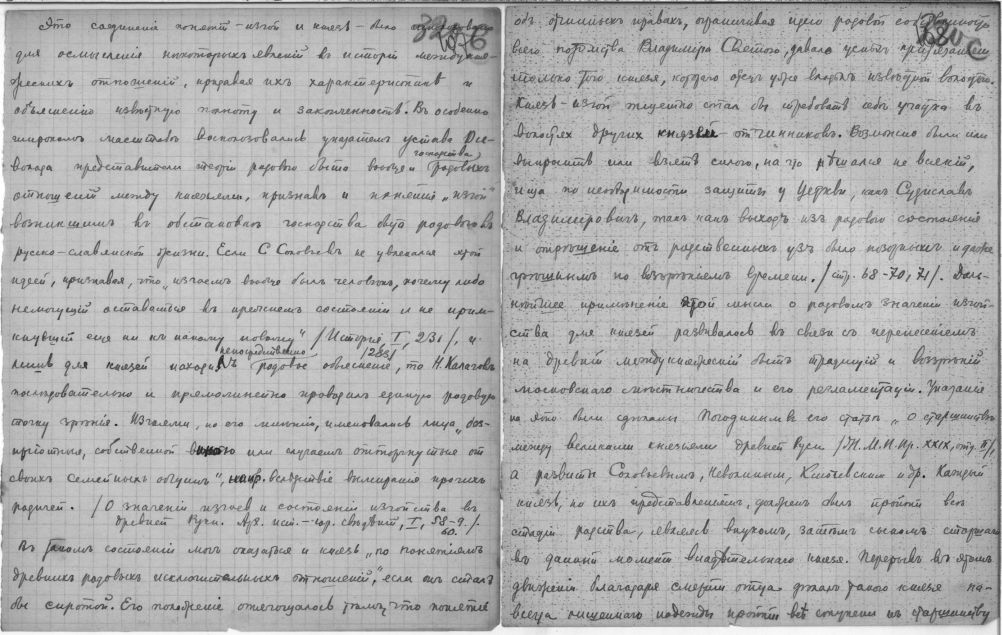 Это соединение понятий – изгой и князь – было
для осмысления некоторых явлений в истории междукня-
жеских отношений, придавая их характеристике и
объяснению известную полноту и законченность. Въ особенно
широкомъ масштабе воспользовались указанием устава Все-
волода представители теории родового быта вообще и господства родовыхъ
отношений между князьями, признавъ и понятие „изгой“
возникшимъ въ обстановке господства быта родового въ
русско-славянской жизни. Если С. Соловьевъ не увлекался этой
идеей, признавая, что „изгоемъ вообще былъ человекъ, почему либо
немогущий оставаться въ прежнемъ состоянии и не примк-
нувший еще ни къ какому новому“ /История, I, 231/, и
лишь для князей находилъ непосредственно родовое объяснение, /283/ то Н. Калачовъ
последовательно и прямолинейно проводилъ единую родовую
точку зрения. Изгоями, по его мнению, именовались лица, „доб-
ровольно, собственной виною или случаемъ отторгнутые от
своихъ семейныхъ общин“, напр. вследствие вымирания прочихъ
родичей. /О значении изгоев и состоянии изгойства въ
древней Руси. Арх. ист.-юр. сведений, I, 58-9. 60./
Въ такомъ состоянии могъ оказаться и князь „по понятиямъ
древнихъ родовыхъ исключительныхъ отношений“, если онъ сталъ
бы сиротой. Его положение отягощалось темъ, что понятие
объ отчинныхъ правахъ, ограничивая идею родовой собственности
всего потомства Владимира Святого, давало успехъ притязаниямъ
только того князя, которого отецъ уже владелъ известной волостью.
Князь-изгой тщетно сталъ бы требовать себе участка въ
волостяхъ другихъ князей-отчинниковъ. Возможно были или
выпросить или взять силою, на что решался не всякий,
ища по необходимости защиты у Церкви, какъ Судиславъ
Владимировичъ, такъ какъ выходъ изъ родового состояния
и отрешение отъ родственныхъ узъ было позорнымъ и даже
грешнымъ по воззрениемъ времени. /стр. 68-70, 71/. Даль-
нейшее применение этой мысли о родовомъ значении изгой-
ства для князей развивалось въ связи съ перенесениемъ
на древний междукняжеский бытъ традиций и воззрений
московского местничества и его регламентаций. Указание
на это были сделаны Погодинымъ въ его статье „О старшинстве
между великими князьями древней Руси /Ж.М.Н.Пр. XXIX, отд. II/,
а развиты Соловьевым, Неволиным, Ключевским и др. Каждый
князь, по их представлениямъ, долженъ былъ пройти все
стадии родства, являясь внукомъ, затемъ сыномъ старшаго
въ данный моментъ владетельнаго князя. Перерывъ въ этомъ
движении благодаря смерти отца делалъ такого князя на-
всегда лишеннаго надежды пройти все ступени къ старшинству